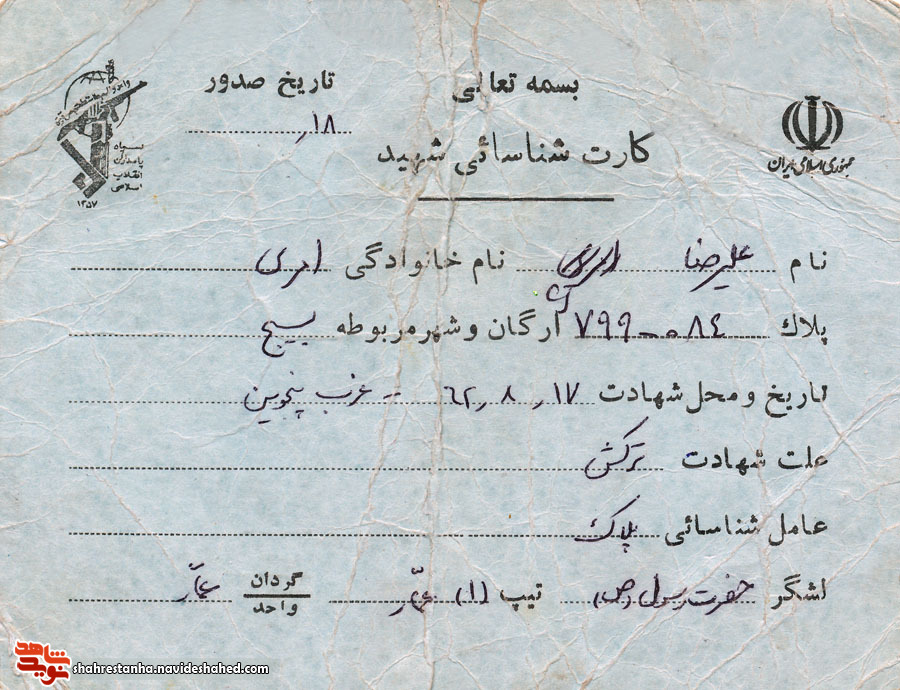 بسمه تعالی
تاریخ صدور
۱۸ر
کارت شناسائی شهید
جمهوری اسلامی ایران
سپاه
پاسداران
انقلاب
اسلامی
۱۳۵۷
نام علیرضا نام خانوادگی امری
پلاك ۷۹۹-۰۸٤ ارگان و شهر مربوطه بسیج
تاریخ و محل شهادت ۱۷ر ۸ر ٦۲ -- غرب پنجوین
علت شهادت ترکش
عامل شناسائی پلاک
لشگر حضرت رسول (ص) تیپ (۱) عمّار گردان واحد عمّار
نوید شاهد shahrestanha.navideshahed.com